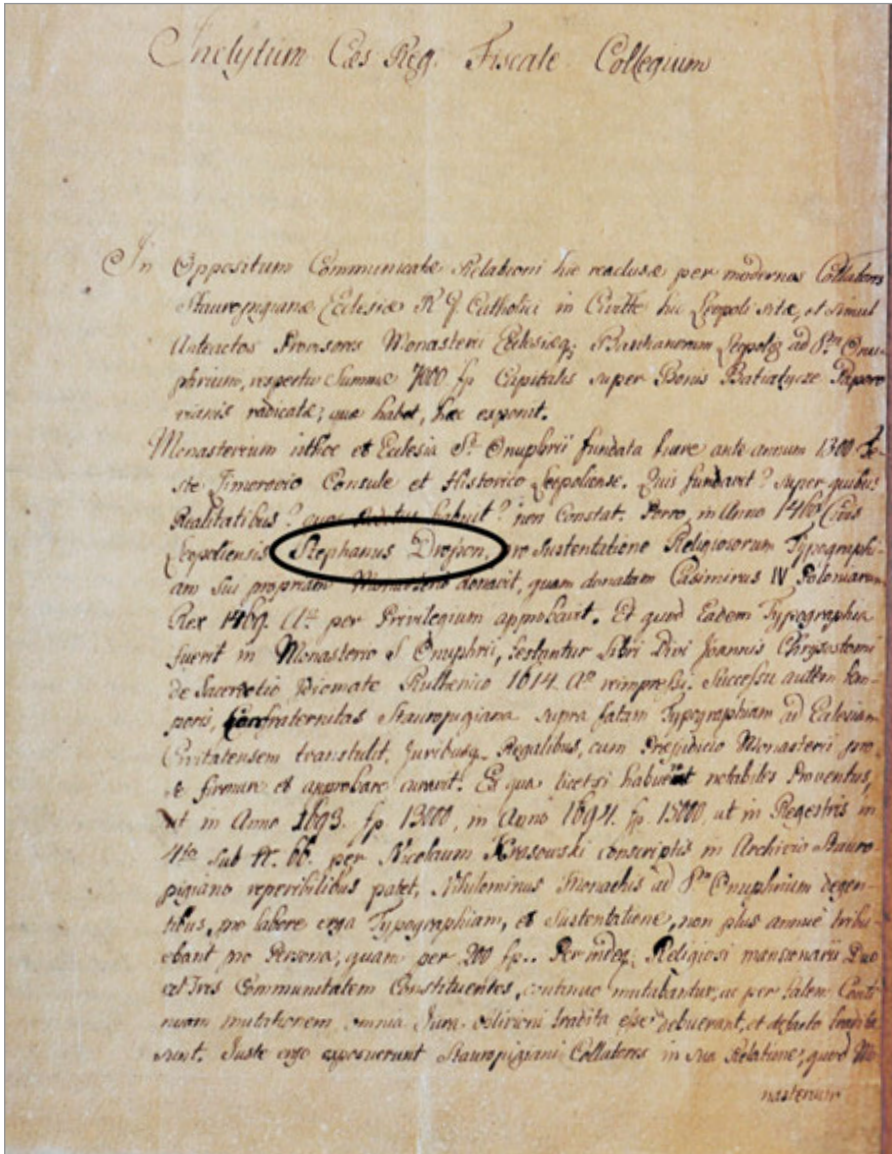 Inclytum Cæs Reg. Fiscale Collegium
In Oppositum Communicatæ Relationi hic reaclusæ per modernos Collatores
Stauropigianæ Ecclesiæ R. G. Catholici in Civitte hic Leopoli sitæ, et simul
Anteactos Provisores Monasterii Ecclesiæq; Basilianorum Leopolis ad Stm Onu-
phrium, respectu Summæ 7000 fp Capitalis super Bonis Batiatycze Papro
cianis radicatæ; quæ habet, hæc exponit.
Monasterium isthoc et Ecclesia St. Onuphrii fundata fuere ante annum 1300 Te-
ste Zimorovio Consule et Historico Leopoliense. Quis fundavit? super quibus
Realitatibus? quos reditus habuit? non Constat. Porro, in Anno 1460 Civis
Leopoliensis Stephanus Dropan, pro Sustentatione Religiosorum Typographi-
am sui propriam Monasterio donavit, quam donatam Casimirus IV Poloniarum
Rex 1469. Ao per Privilegium approbavit. Et quod Eadem Typographia
fuerit in Monasterio S Onuphrii, testantur Libri Divi Joannis Chrysostomi
de Sacerdotio Idiomate Ruthenico 1614. Ao reimpressi. Successu autem tem-
poris, Confraternitas Stauropigiana supra fatam Typographiam ad Ecclesiam
Civitatensem transtulit, Juribusq. Regalibus, cum Præjudicio Monasterii pro
se firmare et approbare curavit. Ex qua licet si habuerint notabiles Proventus,
ut in Anno 1693. fp. 13000, in Anno 1694. fp. 15000, ut in Regestris in
4to sub N. 66. per Nicolaum Krasowski conscriptis in Archivio Stauro-
pigiano reperibilibus patet, Nihilominus Monachis ad Stm Onuphrium degen-
tibus, pro labore erga Typographiam, et Sustentatione, non plus annue tribu-
ebant pro Persona, quam per 200 fp.. Per indeq; Religiosi mansionarii Duo
vel Tres Communitatem Constituentes, continuo mutabantur, ac per talem Conti
nuam mutationem omnia Jura oblivioni tradita esse debuerant, et defacto tradita
sunt. Juste ergo exposuerunt Stauropigiani Collatores in sua Relatione, quod Mo-
nasterium